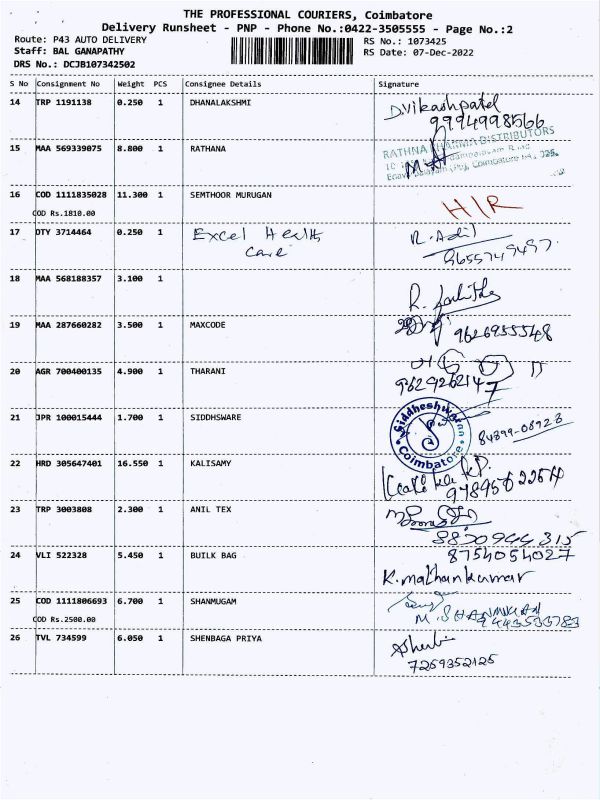 THE PROFESSIONAL COURIERS, Coimbatore
Delivery Runsheet - PNP - Phone No.:0422-3505555 - Page No.:2
Route: P43 AUTO DELIVERY RS No.: 1073425
Staff: BAL GANAPATHY RS Date: 07-Dec-2022
DRS No.: DCJB107342502
S No Consignment No Weight PCS Consignee Details Signature
14 TRP 1191138 0.250 1 DHANALAKSHMI D.Vikashpatel
9994998566
15 MAA 569339075 8.800 1 RATHANA RATHNA PHARMA DISTRIBUTORS
Coimbatore
16 COD 1111835028 11.300 1 SEMTHOOR MURUGAN H/R
COD Rs.1810.00
17 DTY 3714464 0.250 1 Excel Health R. Adil
Care 8655749497
18 MAA 568188357 3.100 1 R.
19 MAA 287660282 3.500 1 MAXCODE 9626955548
20 AGR 700400135 4.900 1 THARANI
9629262147
21 JPR 100015444 1.700 1 SIDDHSWARE Siddheshwaran Coimbatore 84899-08928
22 HRD 305647401 16.550 1 KALISAMY
23 TRP 3003808 2.300 1 ANIL TEX
8870944315
24 VLI 522328 5.450 1 BUILK BAG 8754054027
K.mathankumar
25 COD 1111806693 6.700 1 SHANMUGAM M.SHANMUGAM
COD Rs.2500.00 9443533783
26 TVL 734599 6.050 1 SHENBAGA PRIYA
7259352125